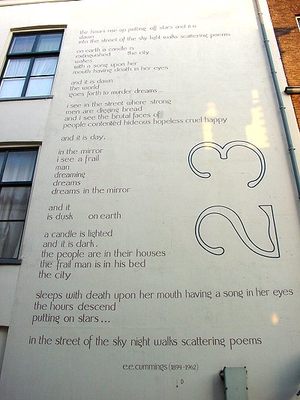 the hours rise up putting off stars and it is
dawn
into the street of the sky light walks scattering poems
on earth a candle is
extinguished the city
wakes
with a song upon her
mouth having death in her eyes
and it is dawn
the world
goes forth to murder dreams...
i see in the street where strong
men are digging bread
and i see the brutal faces of
people contented hideous hopeless cruel happy
and it is day.
in the mirror
i see a frail
man
dreaming
dreams
dreams in the mirror
and it
is dusk on earth
a candle is lighted
and it is dark.
the people are in their houses
the frail man is in his bed
the city
sleeps with death upon her mouth having a song in her eyes
the hours descend
putting on stars...
in the street of the sky night walks scattering poems
e.e. cummings (1894-1962)
23